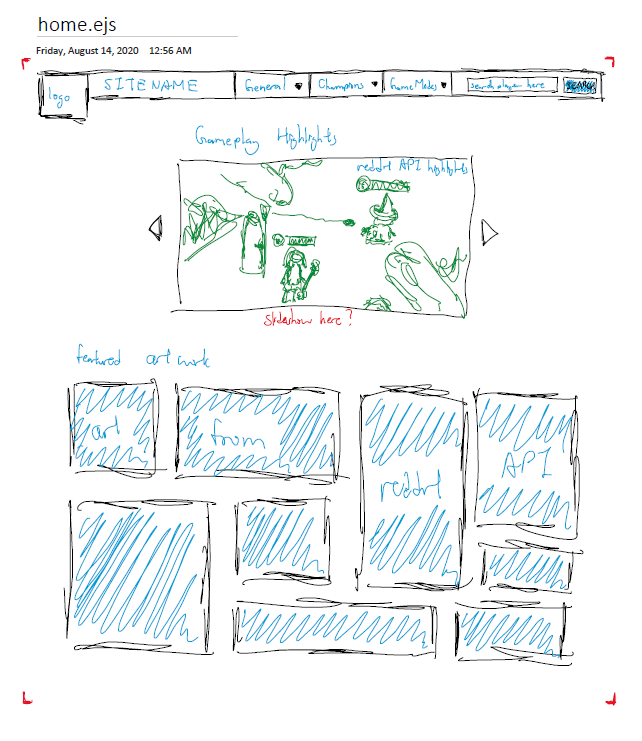 home.ejs
Friday, August 14, 2020 12:56 AM
logo
SITENAME
General
Champions
GameModes
search player here
Gameplay Highlights
reddit API highlights
Slideshow here?
featured artwork
art
from
reddit
API